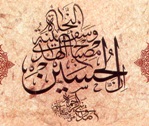 ان الحسین
مصباح الهدی
وسفینة النجاة